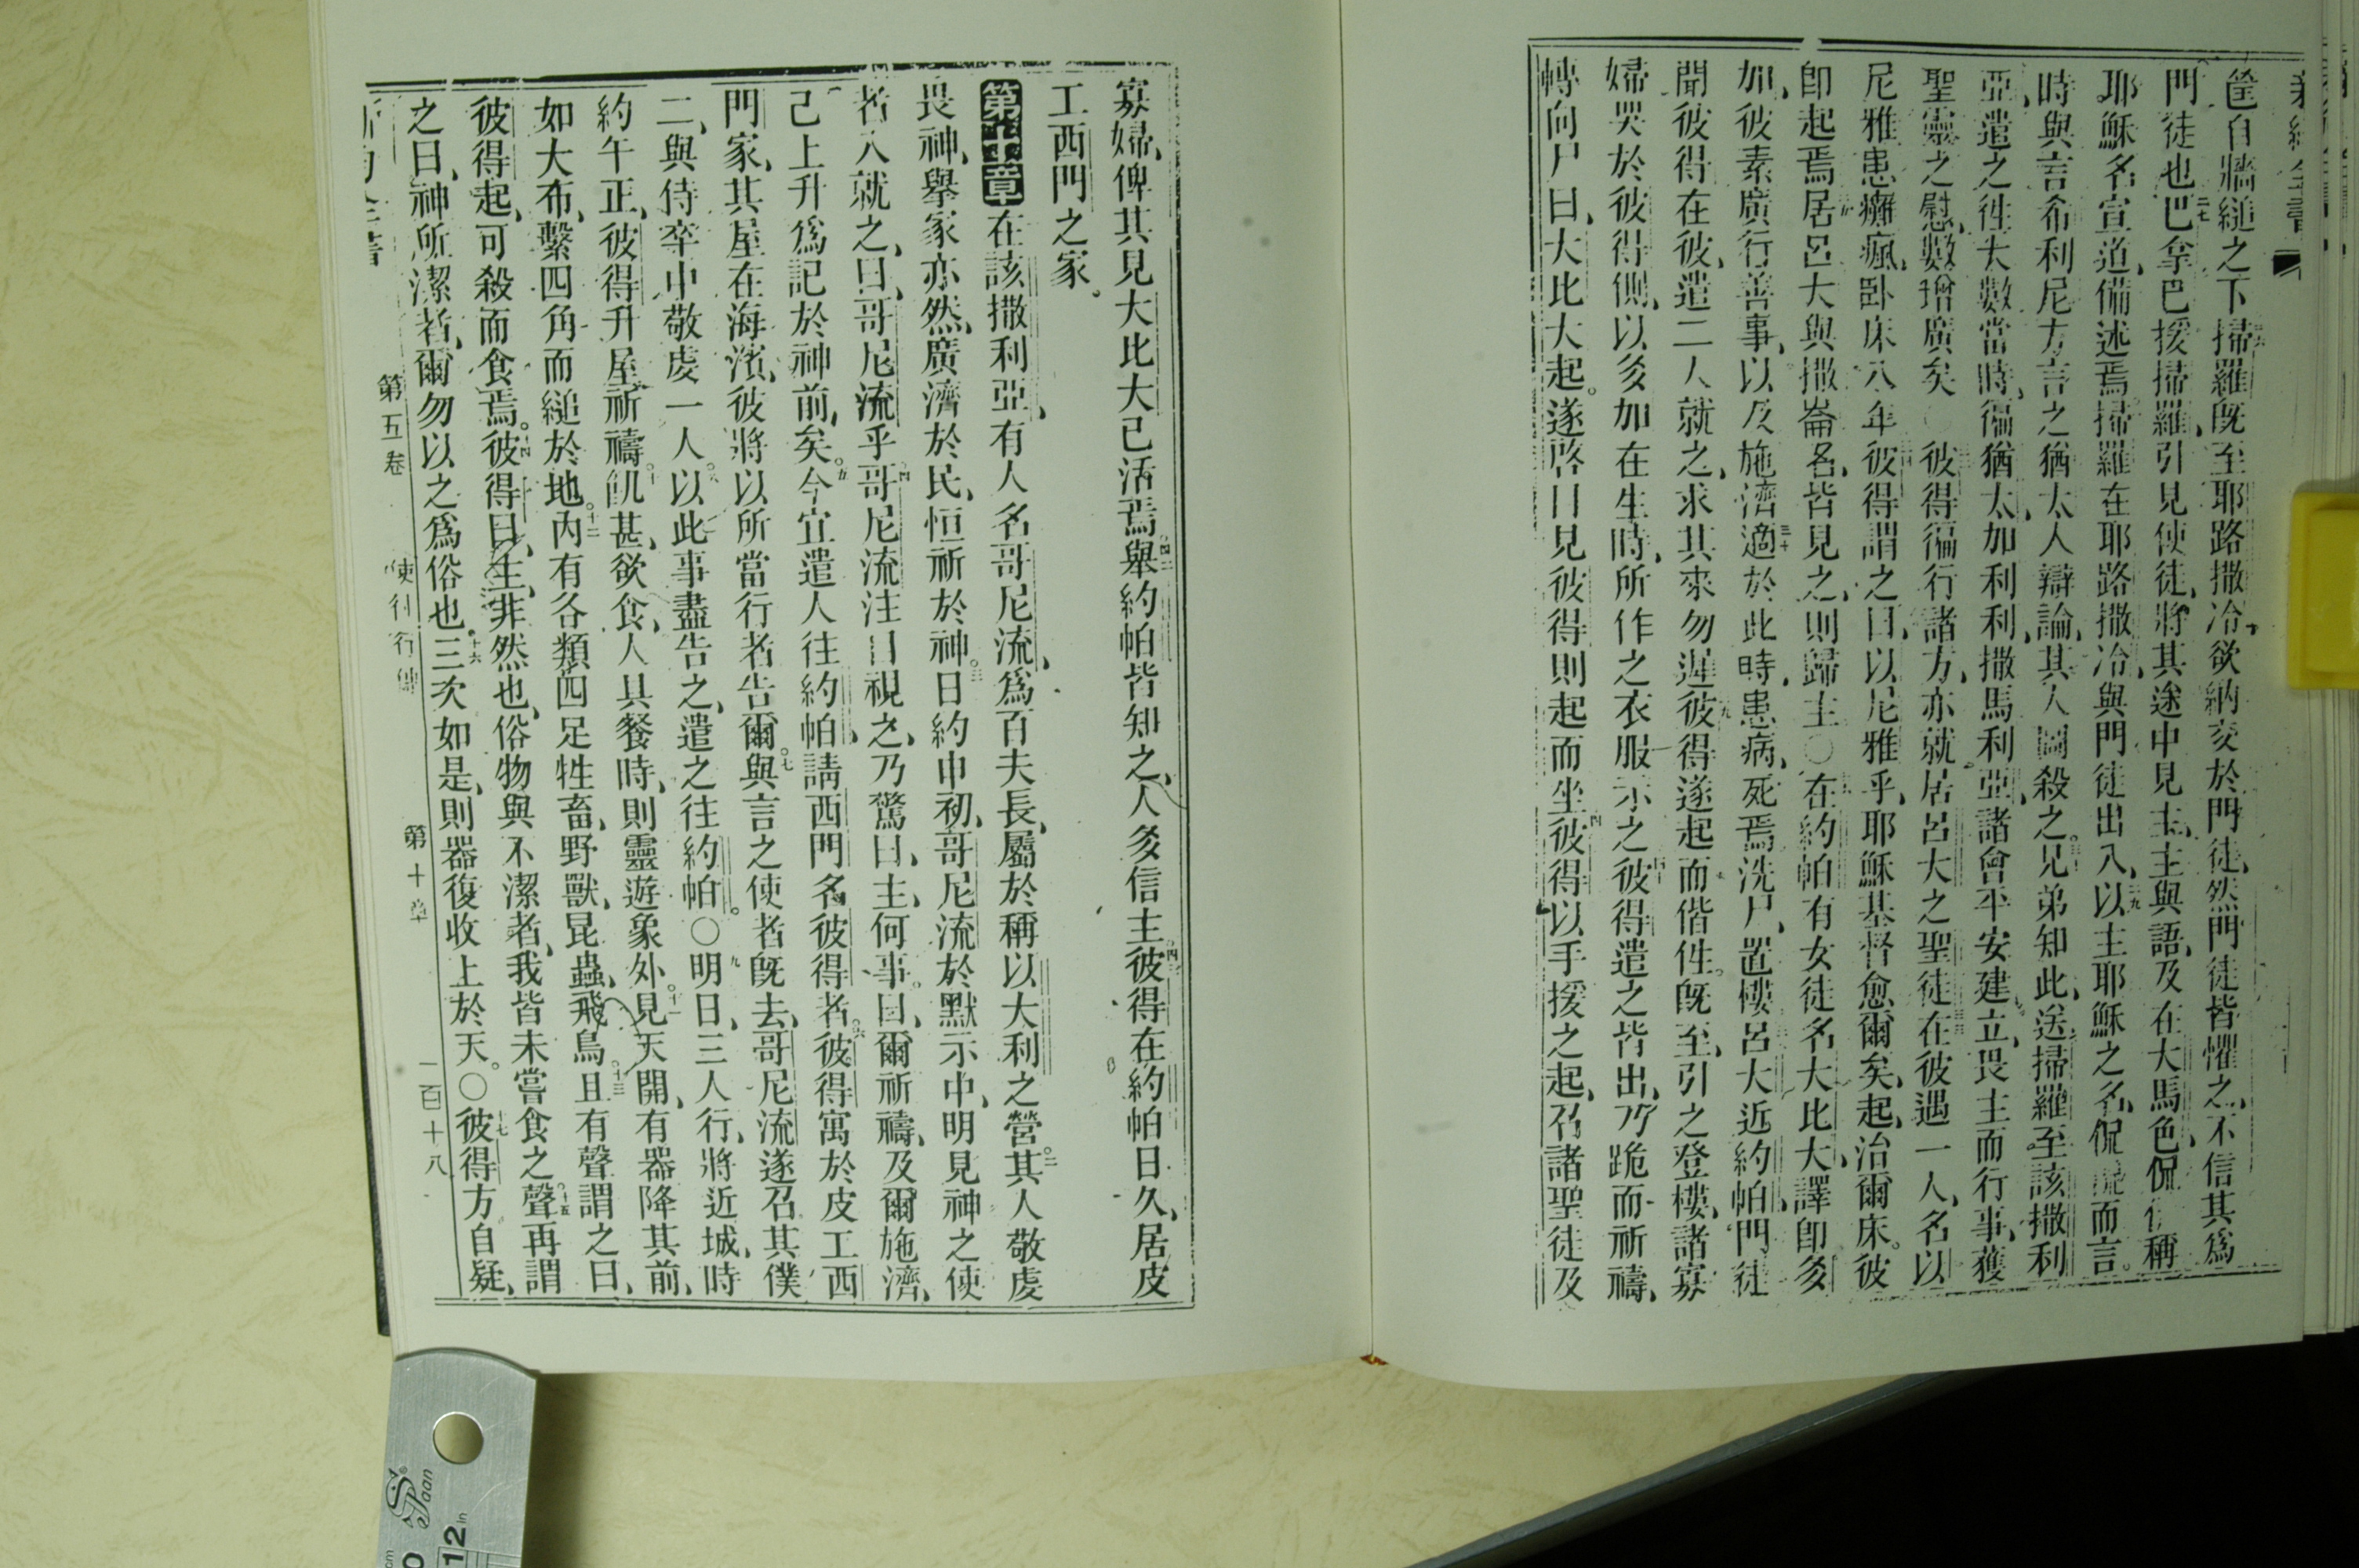 新約全書
筐自牆縋之下掃羅旣至耶路撒冷欲納交於門徒然門徒皆懼之不信其爲
門徒也巴拿巴援掃羅引見使徒將其途中見主主與語及在大馬色侃侃稱
耶穌名宣道備述焉掃羅在耶路撒冷與門徒出入以主耶穌之名侃侃而言
時與言希利尼方言之猶太人辯論其人圖殺之兄弟知此送掃羅至該撒利
亞遣之往大數當時徧猶太加利利撒馬利亞諸會平安建立畏主而行事獲
聖靈之慰數增廣矣○彼得徧行諸方亦就居呂大之聖徒在彼遇一人名以
尼雅患癱瘋臥床八年彼得謂之曰以尼雅乎耶穌基督愈爾矣起治爾床彼
卽起焉居呂大與撒崙者皆見之則歸主○在約帕有女徒名大比大譯卽多
加彼素廣行善事以及施濟適於此時患病死焉洗尸置樓呂大近約帕門徒
聞彼得在彼遣二人就之求其來勿遲彼得遂起而偕往旣至引之登樓諸寡
婦哭於彼得側以多加在生時所作之衣服示之彼得遣之皆出乃跪而祈禱
轉向尸曰大比大起遂啓目見彼得則起而坐彼得以手援之起召諸聖徒及
寡婦俾其見大比大已活焉舉約帕皆知之人多信主彼得在約帕日久居皮
工西門之家
第十章 在該撒利亞有人名哥尼流爲百夫長屬於稱以大利之營其人敬虔
畏神舉家亦然廣濟於民恒祈於神日約申初哥尼流於默示中明見神之使
者入就之曰哥尼流乎哥尼流注目視之乃驚曰主何事曰爾祈禱及爾施濟
己上升爲記於神前矣今宜遣人往約帕請西門名彼得者彼得寓於皮工西
門家其屋在海濱彼將以所當行者告爾與言之使者旣去哥尼流遂召其僕
二與侍卒中敬虔一人以此事盡告之遣之往約帕○明日三人行將近城時
約午正彼得升屋祈禱飢甚欲食人具餐時則靈遊象外見天開有器降其前
如大布繫四角而縋於地內有各類四足牲畜野獸昆蟲飛鳥且有聲謂之曰
彼得起可殺而食焉彼得曰主非然也俗物與不潔者我皆未嘗食之聲再謂
之曰神所潔者爾勿以之爲俗也三次如是則器復收上於天○彼得方自疑
新約全書 第五卷 使徒行傳 第十章 一百十八
Spaan
cm
12 in